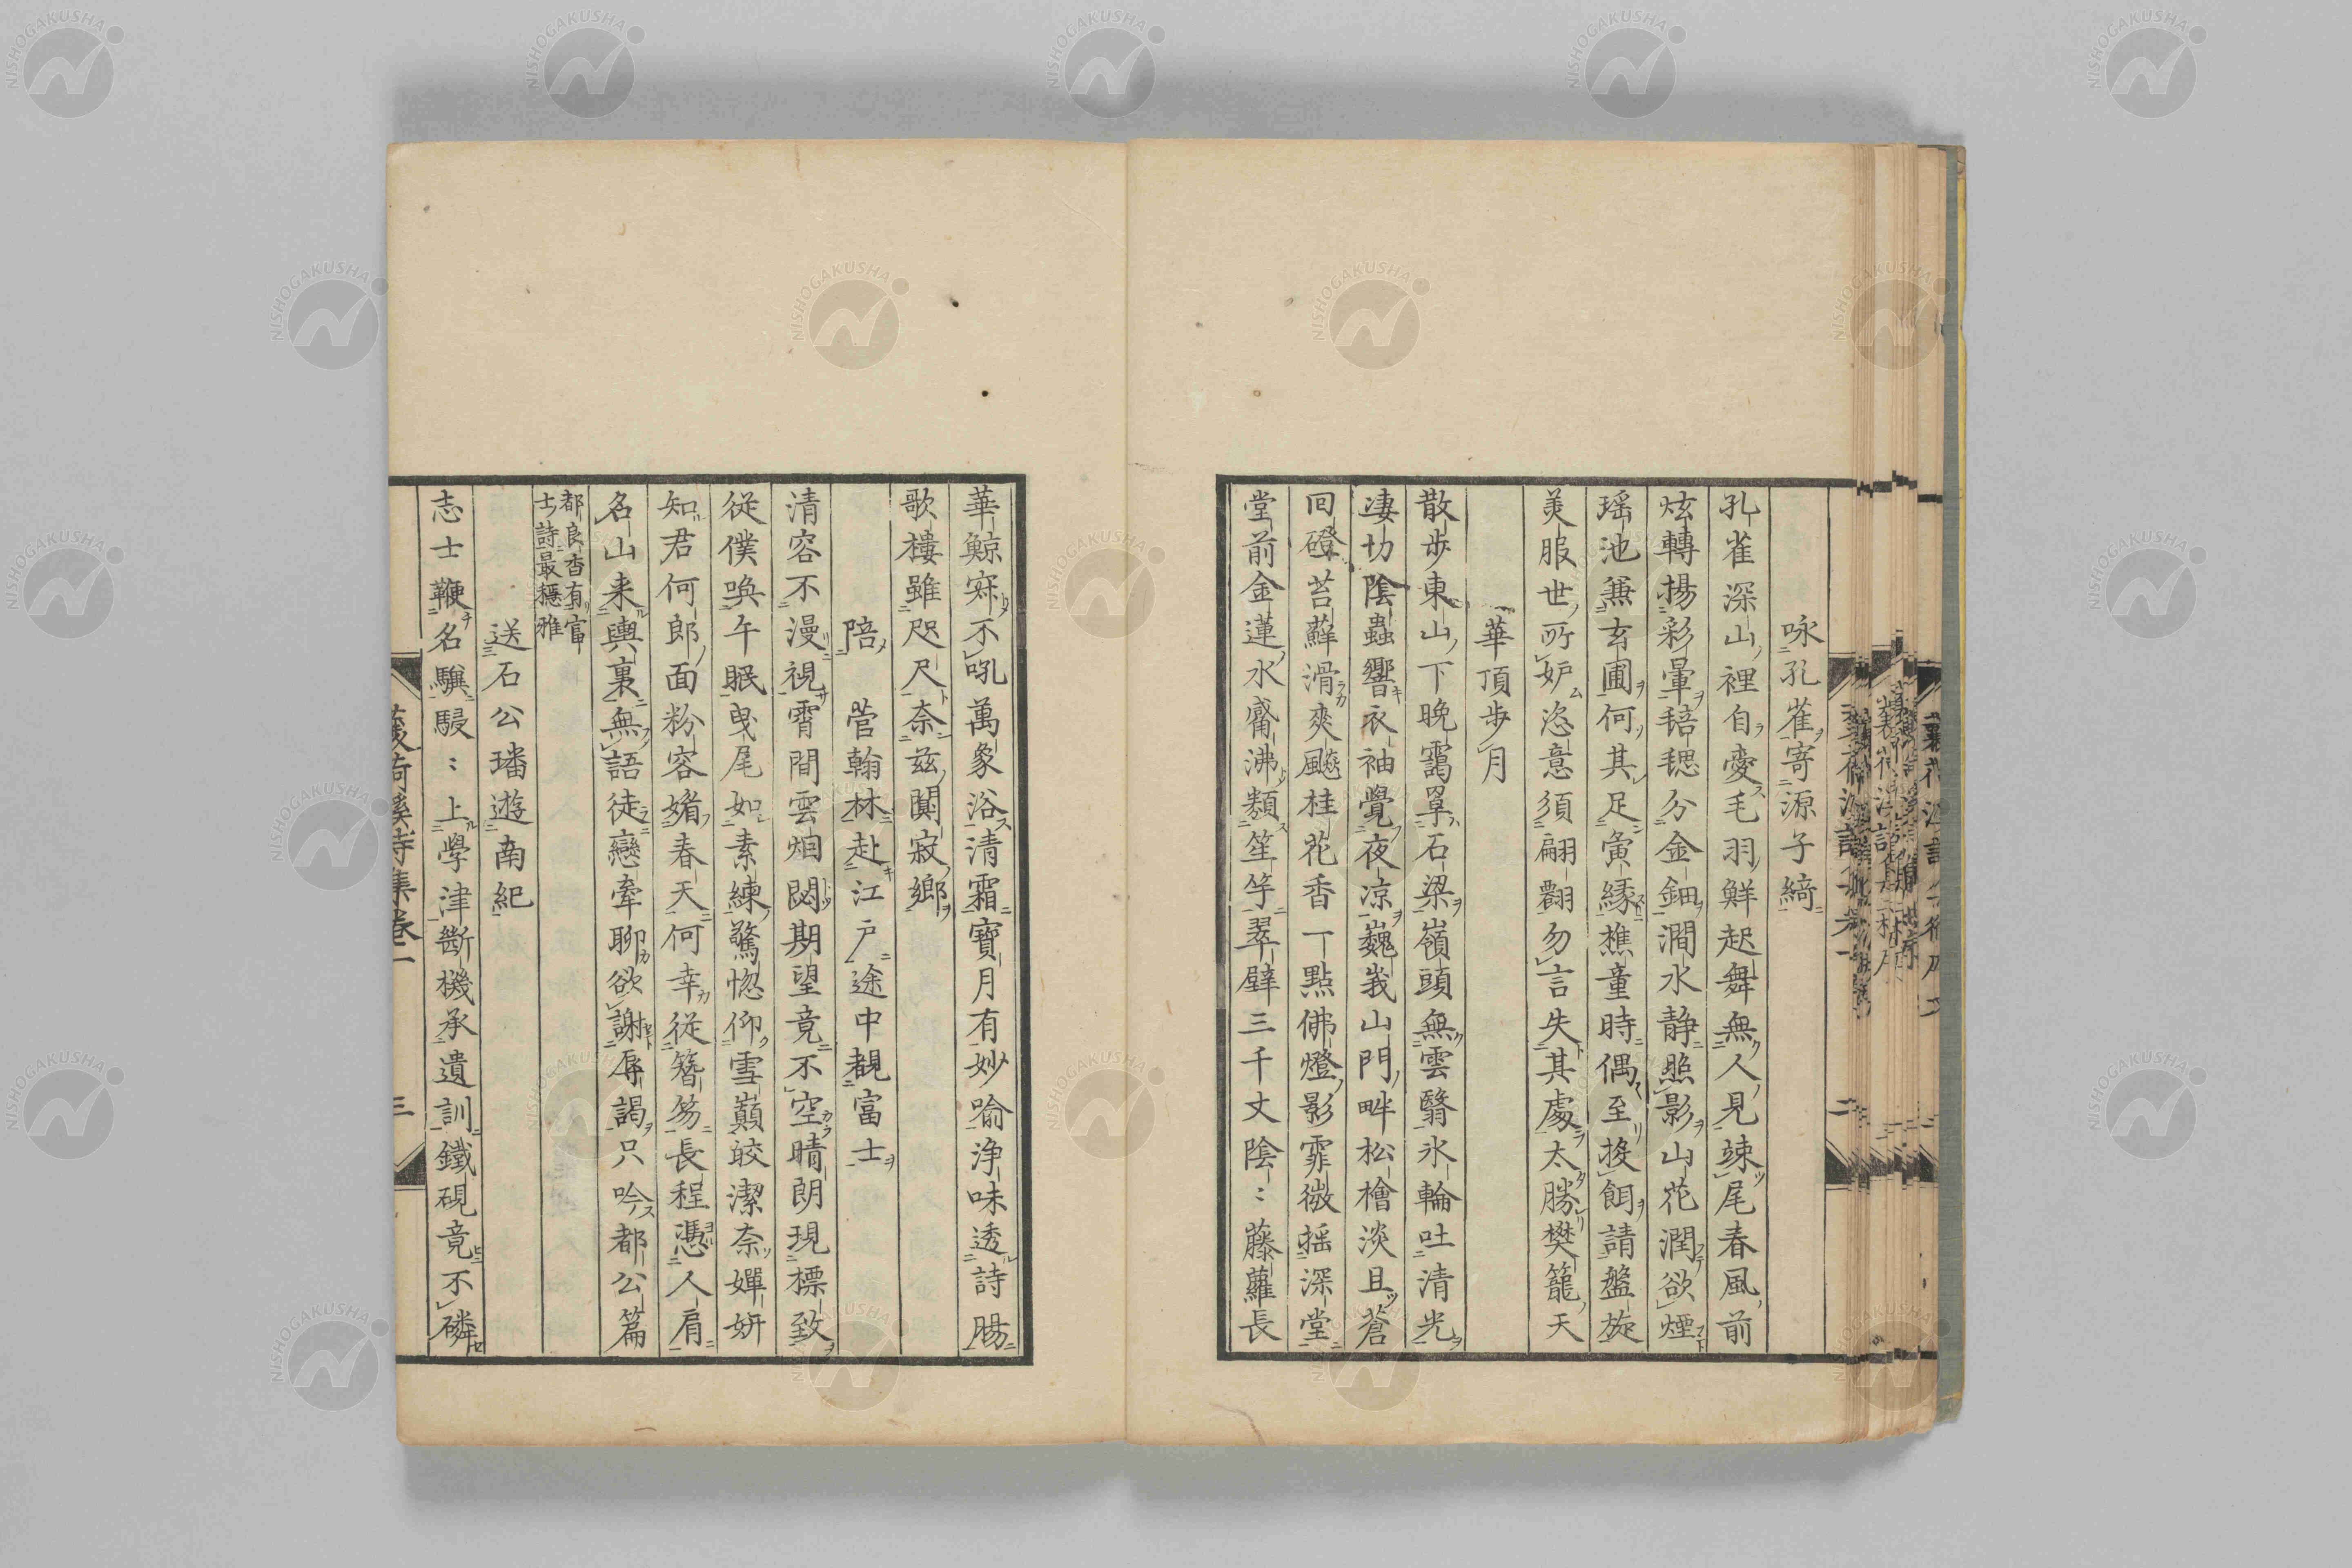 咏孔雀寄源子綺
孔雀深山裡自愛毛羽鮮起舞無人見竦尾春風前
炫轉揚彩暈毰毸分金鈿澗水静照影山花潤欲煙
瑶池兼玄圃何其足寅縁樵童時偶至投餌請盤旋
美服世所妒恣意須翩翻勿言失其處太勝樊籠天
華頂步月
散步東山下晚靄罩石梁嶺頭無雲翳氷輪吐清光
凄切陰蟲響衣袖覺夜凉巍峩山門畔松檜淡且蒼
回磴苔蘚滑爽飈桂花香一點佛燈影霏微揺深堂
堂前金蓮水觱沸類笙竽翠壁三千丈陰〻藤蘿長
華鯨寂不吼萬象浴清霜寶月有妙喻浄味透詩腸
歌樓雖咫尺奈兹闃寂鄉
陪菅翰林赴江戸途中覩富士
清容不漫視霄間雲烟閟期望竟不空晴朗現標致
從僕喚午眠曳尾如素練驚惚仰雪巔皎潔奈嬋妍
知君何郎面粉容媚春天何幸從簪笏長程憑人肩
名山来輿裏無語徒戀牽聊欲謝辱謁只吟都公篇
都良香有富
士詩最穩雅
送石公璠遊南紀
志士鞭名驥駸〻上學津斷機承遺訓鐵硯竟不磷
三
NISHOGAKUSHA